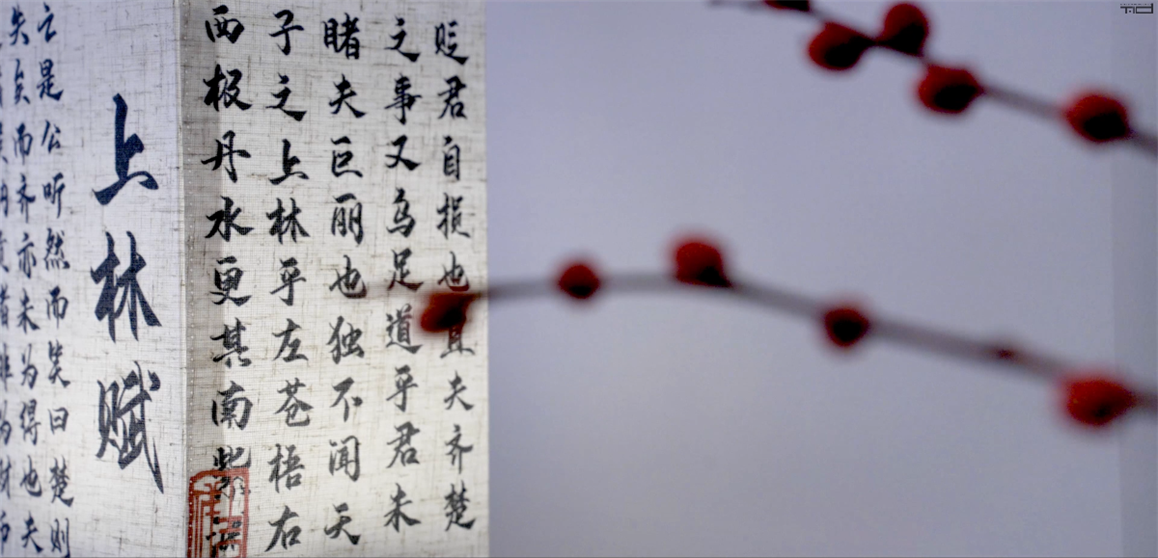 贬君自损也且夫齐楚
之事又乌足道乎君未
睹夫巨丽也独不闻天
子之上林乎左苍梧右
西极丹水更其南紫
上林赋
亡是公听然而笑曰楚则
失矣而齐亦未为得也夫